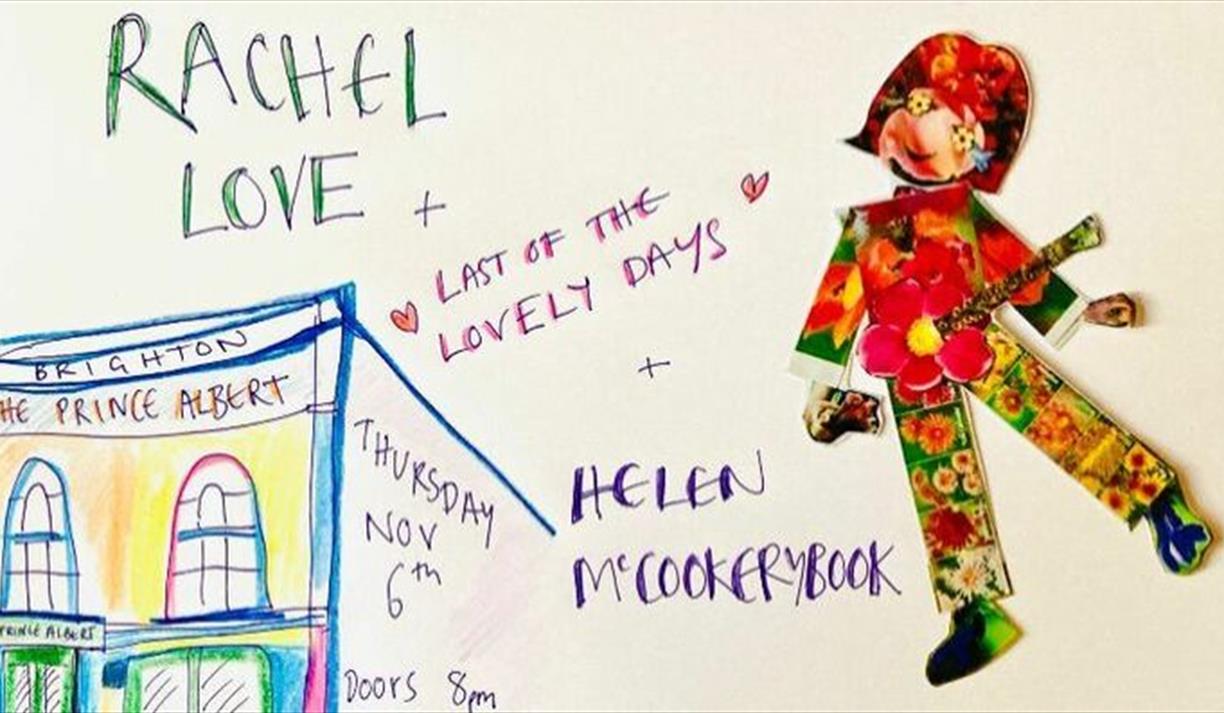 RACHEL
LOVE +
LAST OF THE
LOVELY DAYS
+
HELEN
McCOOKERYBOOK
BRIGHTON
HE PRINCE ALBERT
THURSDAY
NOV
6th
PRINCE ALBERT
DOORS 8pm